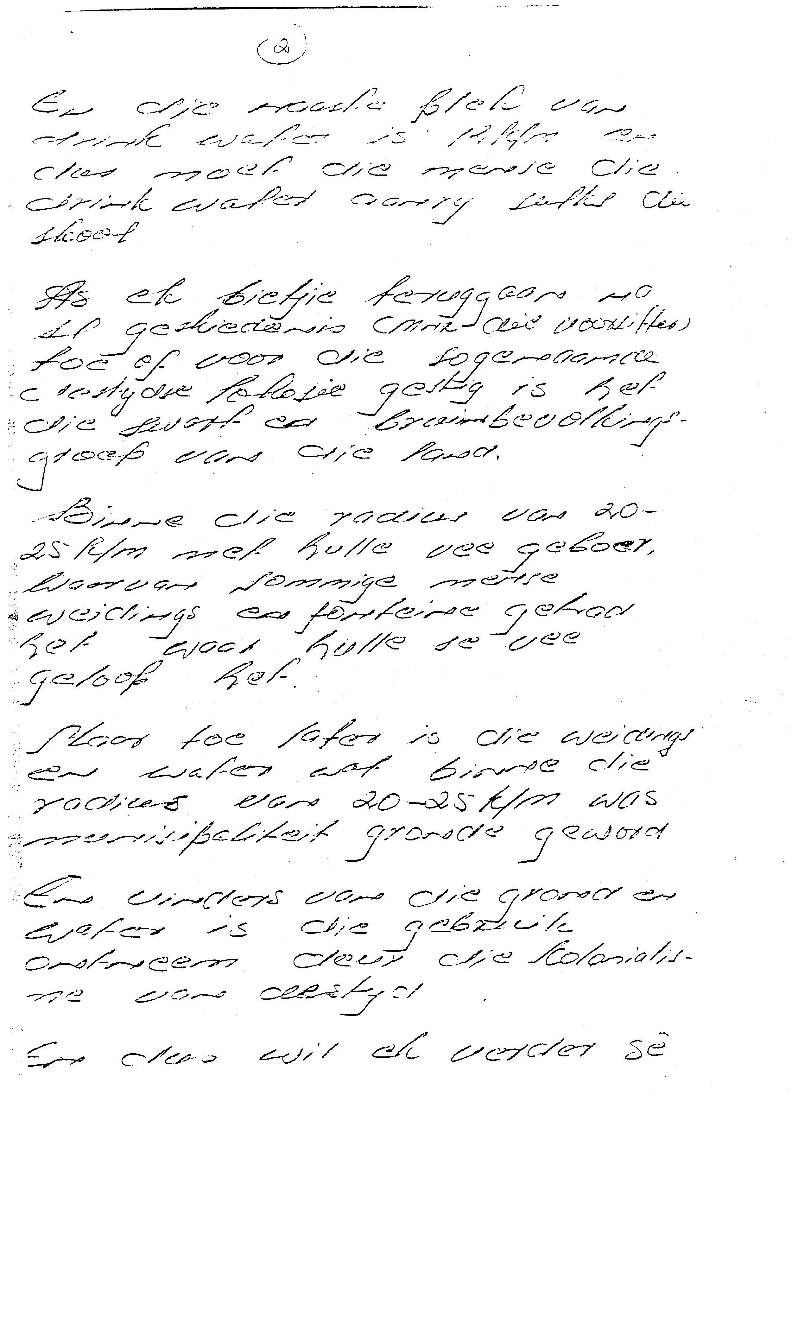 (2)
En die naaste plek van
drink water is 12 k/m en
dus moet die mense die
drink water aanry selfs die
skool
As ek bietjie teruggaan na
geskiedenis (Mnr die voorsitter)
toe of voor die sogenaamde
destydse kolonie gestig is het
die swart en bruinbevolkings-
groep van die land.
Binne die radius van 20-
25 k/m met hulle vee geboer,
waarvan sommige mense
weidings en fonteine gehad
het waar hulle se vee
geloop het.
Maar toe later is die weidings
en water wat binne die
radius van 20-25 k/m was
munisipaliteit gronde geword
En vinders van die grond en
water is die gebruik
ontneem deur die kolonialis-
me van destyd
En dus wil ek verder sê